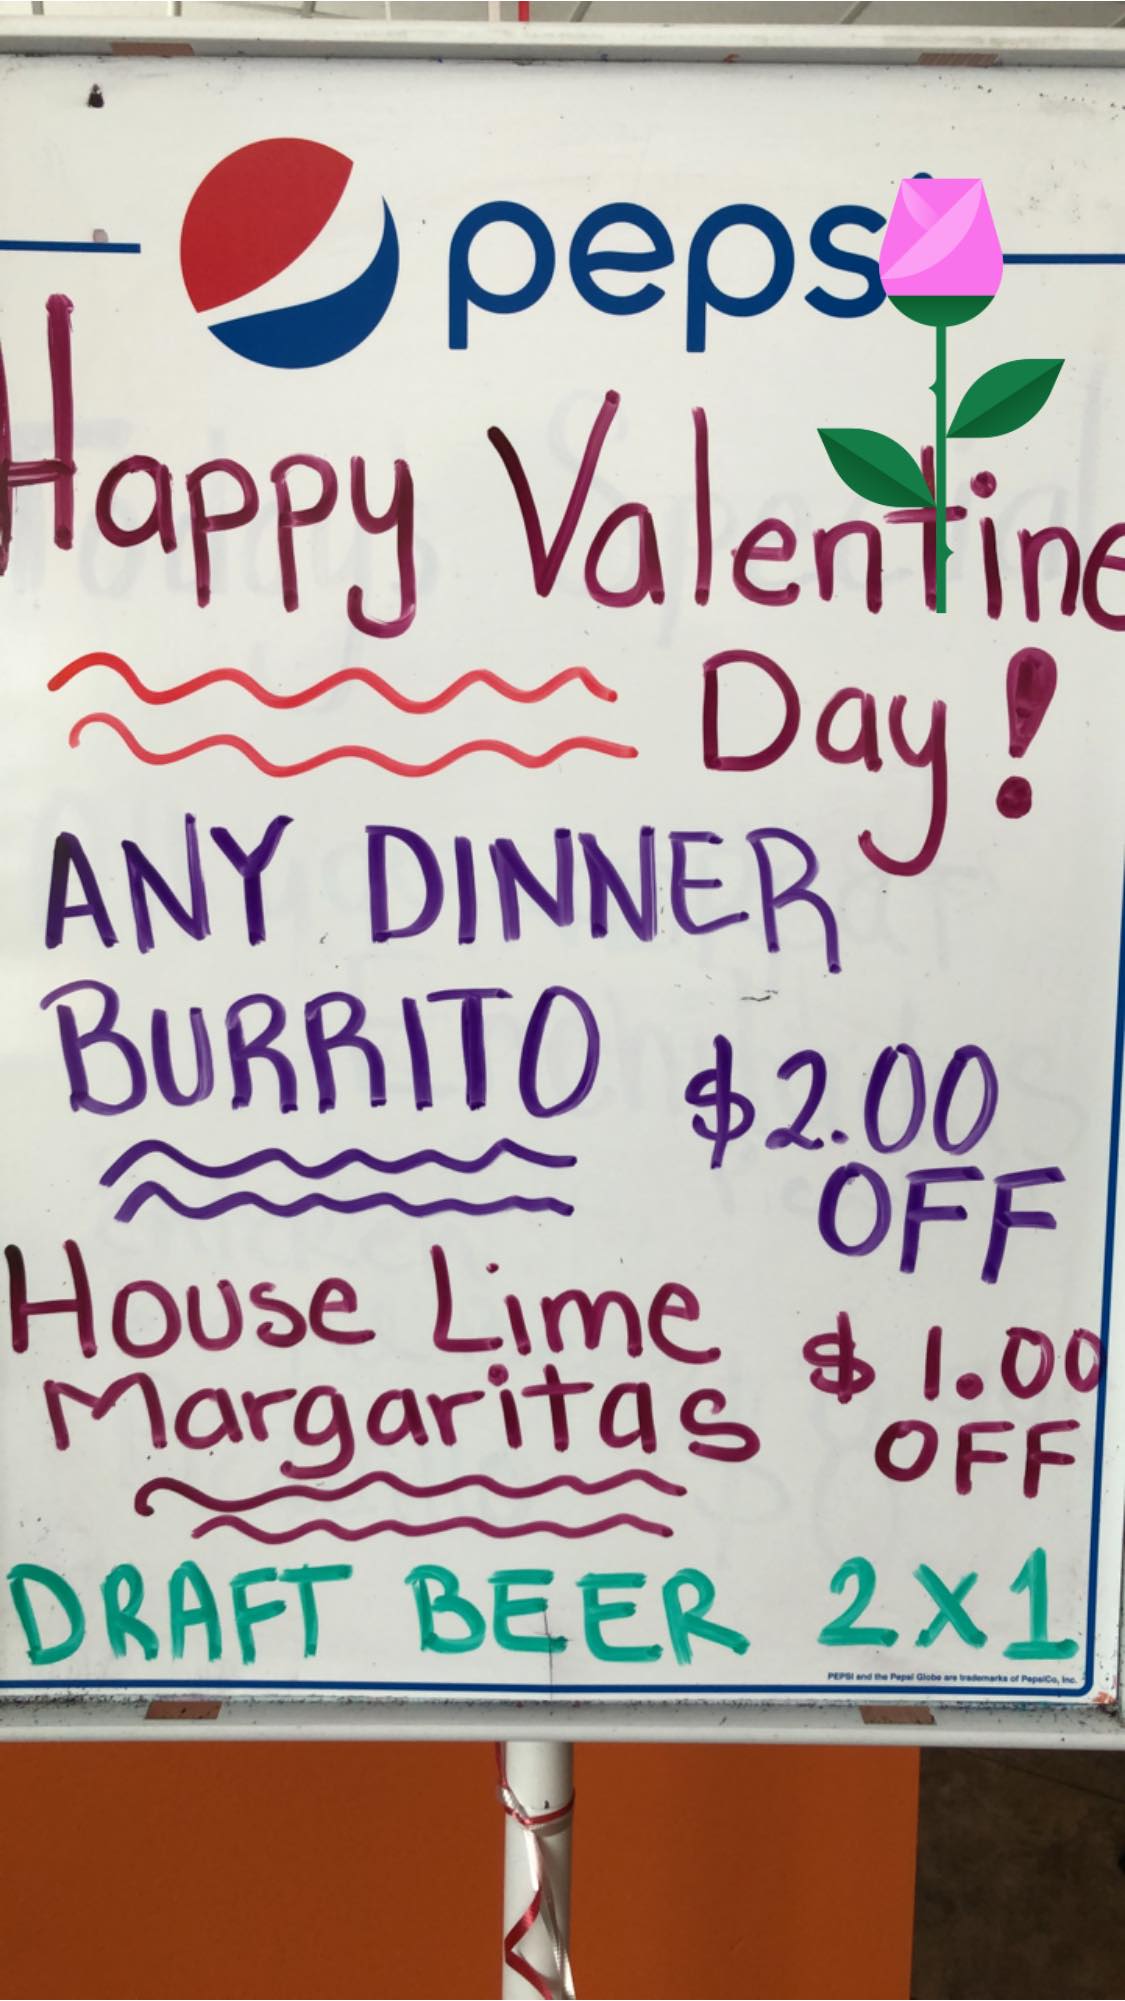 peps
Happy Valentine
Day!
ANY DINNER
BURRITO
$2.00
OFF
House Lime
Margaritas
$1.00
OFF
DRAFT BEER 2X1
PEPSI and the Pepsi Globe are trademarks of PepsiCo, Inc.